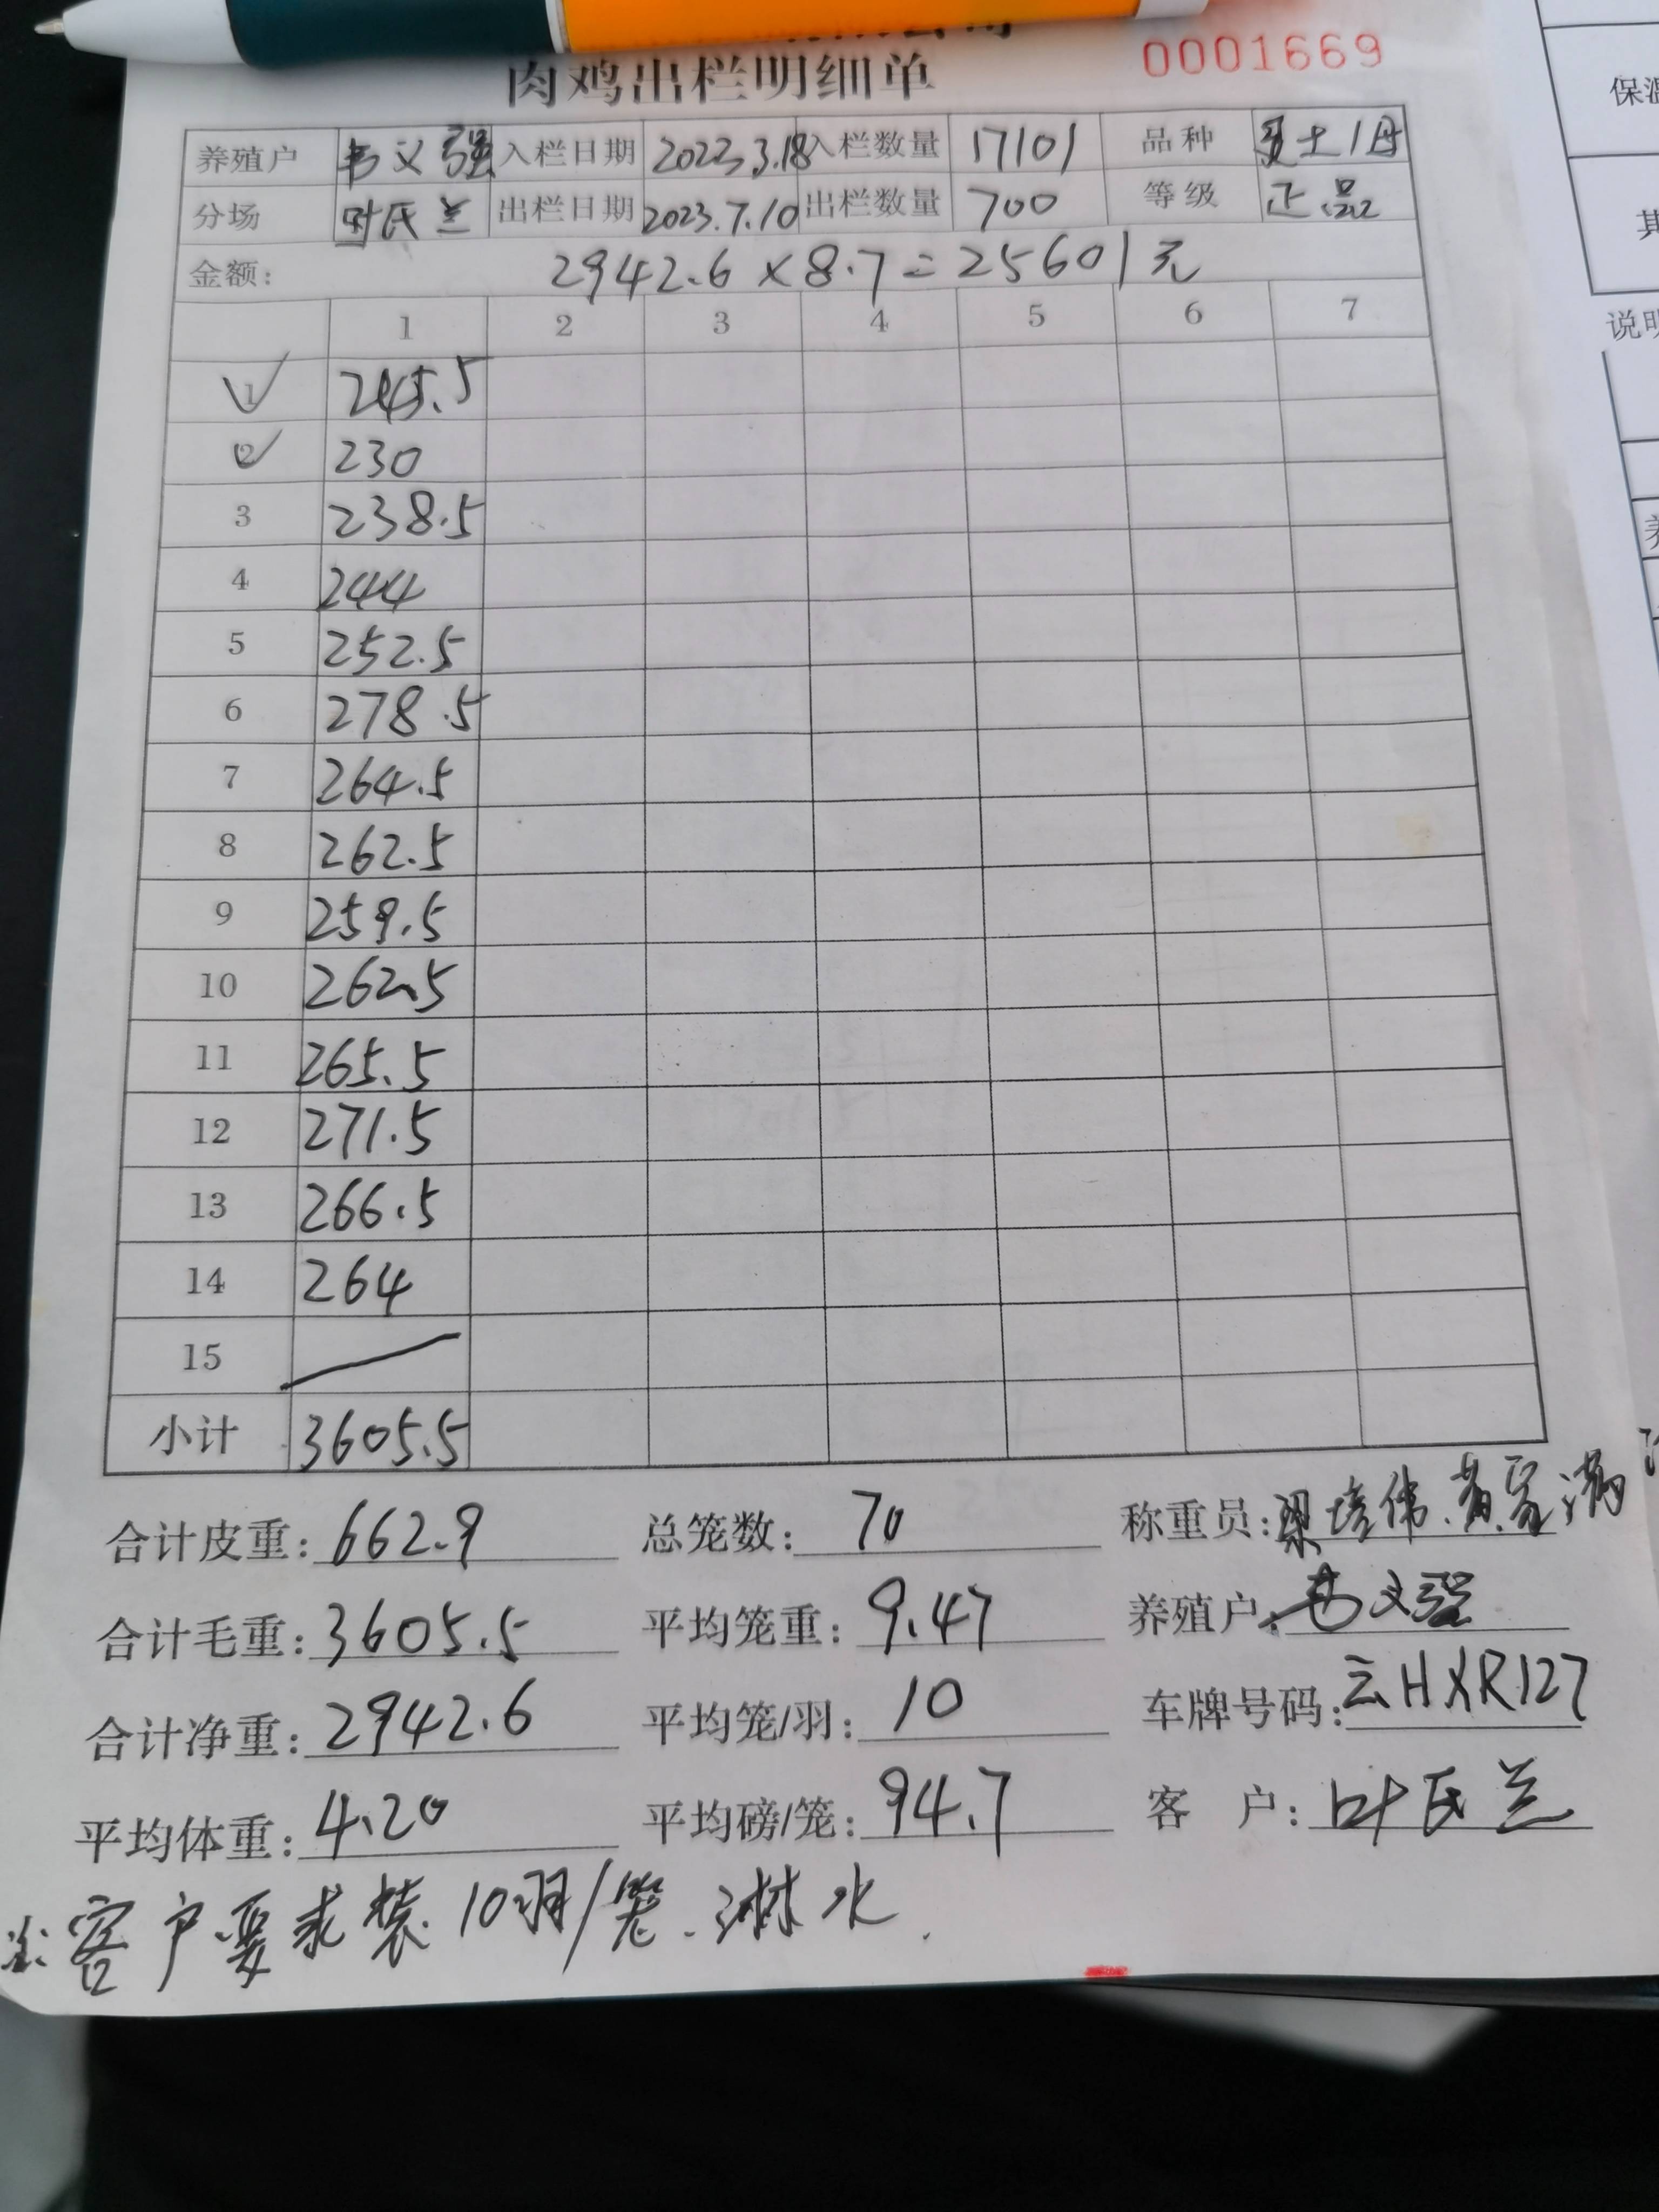 0001669
肉鸡出栏明细单
养殖户 韦义强 入栏日期 2023.3.18 入栏数量 17101 品种 土1母
分场 叶氏兰 出栏日期 2023.7.10 出栏数量 700 等级 正品
金额: 2942.6×8.7=25601元
1 2 3 4 5 6 7
1 245.5
2 230
3 238.5
4 244
5 252.5
6 278.5
7 264.5
8 262.5
9 259.5
10 262.5
11 265.5
12 271.5
13 266.5
14 264
15
小计 3605.5
合计皮重: 662.9 总笼数: 70 称重员: 梁培伟.黄家满
合计毛重: 3605.5 平均笼重: 9.47 养殖户: 韦义强
合计净重: 2942.6 平均笼/羽: 10 车牌号码: 云HXR127
平均体重: 4.20 平均磅/笼: 94.7 客 户: 叶氏兰
注: 客户要求装10羽/笼.淋水.
保温
其
说明
养